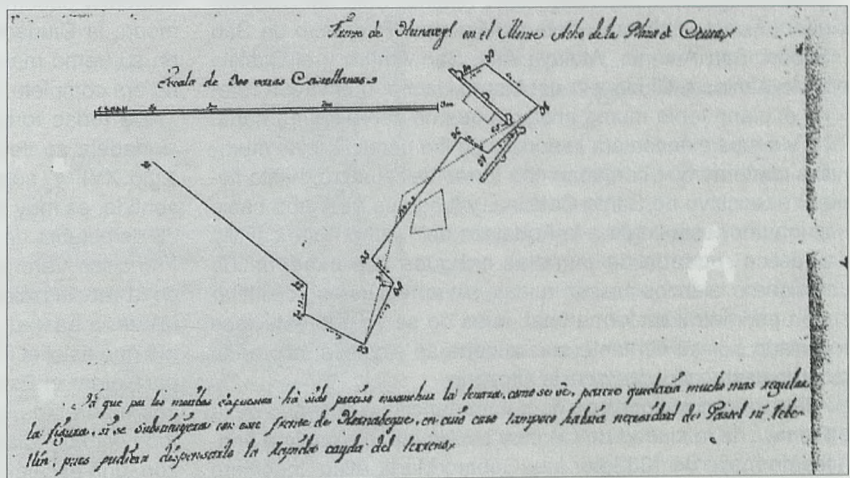 Frente de Hornaveq! en el Monte Acho de la Plaza de Ceuta,
Escala de 300 varas Castellanas
Yá que por los motibos expuesos há sido preciso ensanchar la tenaza, como se vé, parece quedaria mucho mas regular
la figura, si se substituyera con este frente de Hornabeque, en cuio caso tampoco habria necesidad de Pastel ni Rebe-
llin, pues pudiera dispensarlo la rapida cayda del terreno,